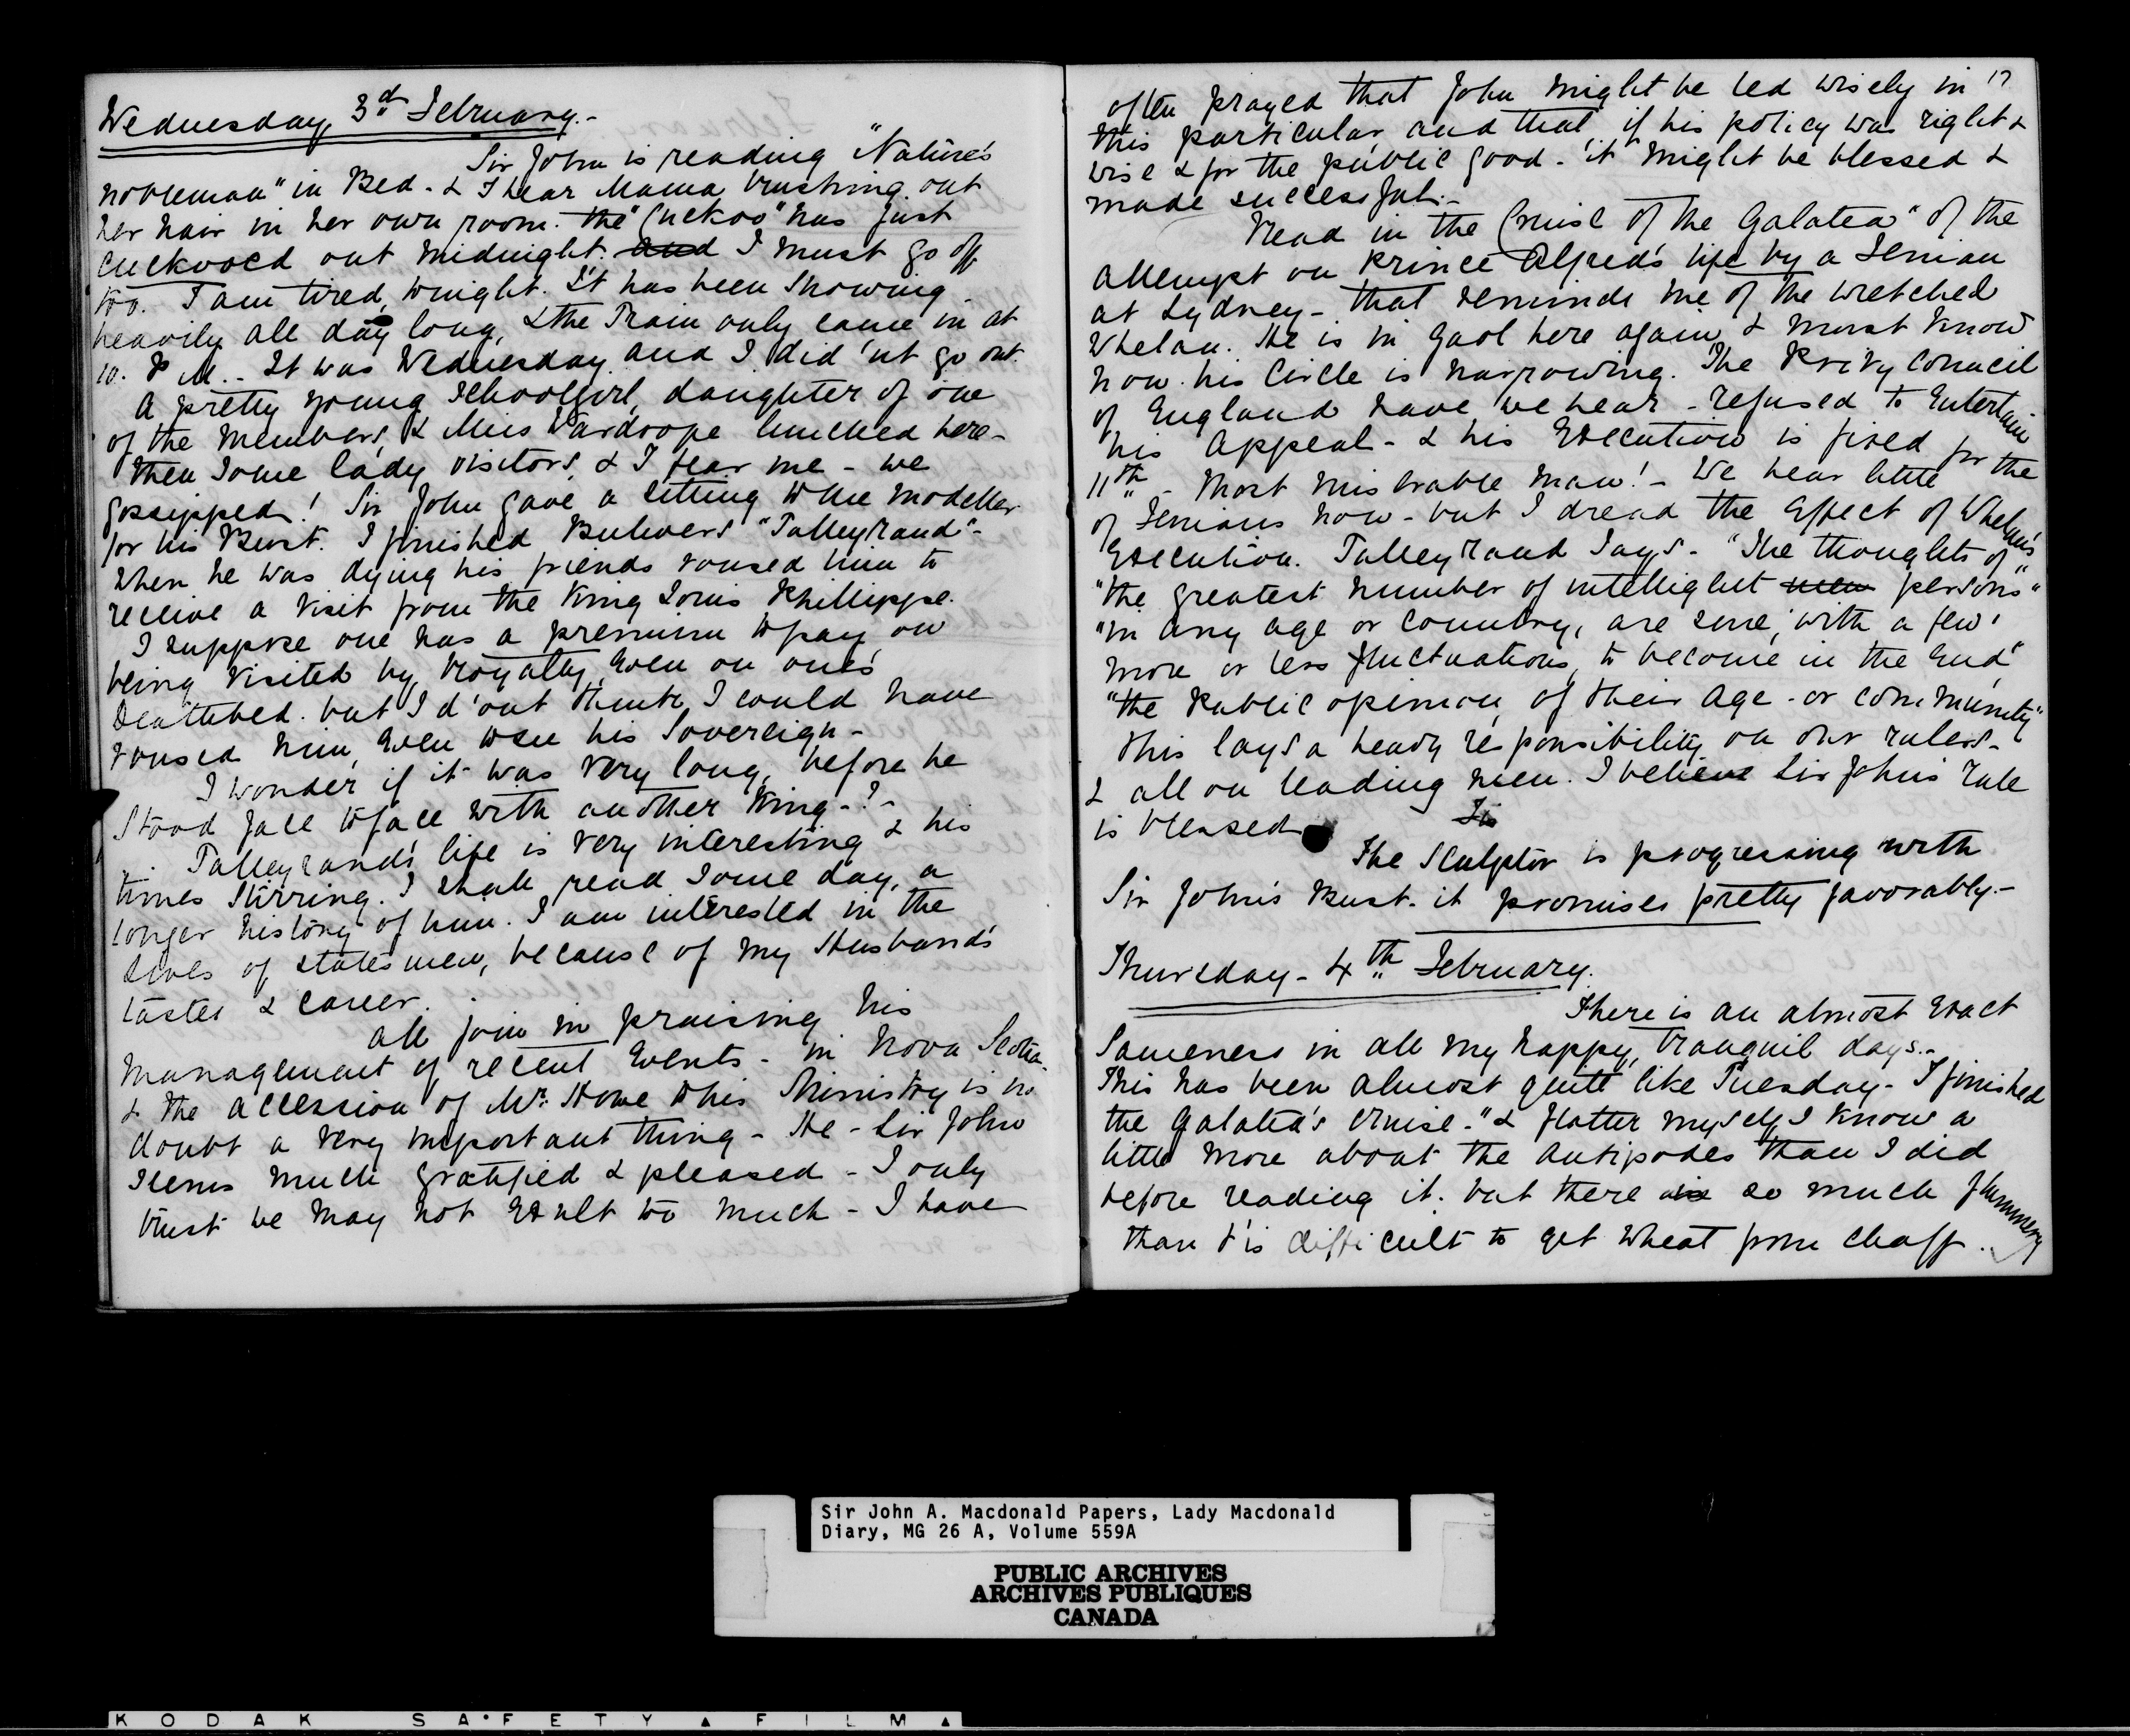 Wednesday, 3d February.-
Sir John is reading "Nature's
nobleman" in Bed - & I hear Mama brushing out
her hair in her own room. the "Cuckoo" has just
cuckooed out midnight. and I must go off
too. I am tired, tonight. It has been snowing
heavily all day long, & the Train only came in at
10. P M. - It was Wednesday and I did 'nt go out.
A pretty young schoolgirl, daughter of one
of the members, & Miss Wardrope lunched here -
then some lady visitors, & I fear me - we
gossipped! Sir John gave a sitting to the modeller
for his Bust. I finished Bulwers "Talleyrand" -
When he was dying his friends roused him to
receive a visit from the King Louis Phillippe.
I suppose one has a premium to pay, on
being visited by Royalty, even on one's
Deathbed. but I d'ont think I could have
roused him, even to see his Sovereign -
I wonder if it was very long, before he
Stood face to face with another King - ? -
Talleyrand's life is very interesting & his
times stirring. I shall read some day, a
longer history of him. I am interested in the
lives of statesmen, because of my Husband's
tastes & career.
All join in praising his
management of recent events - in Nova Scotia.
& the accession of Mr. Howe to his Ministry is no
doubt a very important thing - He - Sir John
seems much gratified & pleased - I only
trust we may not exult too much - I have
17
often prayed that John might be led wisely in
this particular, and that, if his policy was right &
wise & for the public good - it might be blessed &
made successful. -
Read in the Cruise of the Galatea" of the
attempt on Prince Alfred's life by a Fenian
at Sydney - that reminds me of the wretched
Whelan. He is in Gaol here again, & must know
now his Circle is narrowing. The Privy Council
of England have, we hear - refused to Entertain
his Appeal - & his Execution is fixed for the
11th - Most miserable man! - We hear little
of Fenians now - but I dread the effect of Whelan's
Execution. Talleyrand says - "The thoughts of"
"the greatest number of intelligent men persons"
"in any age or Country, are sure, with a few'
more or less fluctuations, to become in the End"
"the Public opinion, of their Age - or community"
this lays a heavy responsibility on our rulers -
& all on leading men. I believe Sir John's rule
is blessed
The Sculptor is progressing with
Sir John's Bust. it promises pretty favorably. -
Thursday - 4th February.
There is an almost exact
Sameness in all my happy, tranquil days. -
This has been almost quite like Tuesday - I finished
the Galatea's Cruise -" & flatter myself, I know a
little more about the Antipodes than I did
before reading it. but there is so much flummery
than t'is difficult to get Wheat from Chaff.
Sir John A. Macdonald Papers, Lady Macdonald
Diary, MG 26 A, Volume 559A
PUBLIC ARCHIVES
ARCHIVES PUBLIQUES
CANADA
KODAK SAFETY FILM